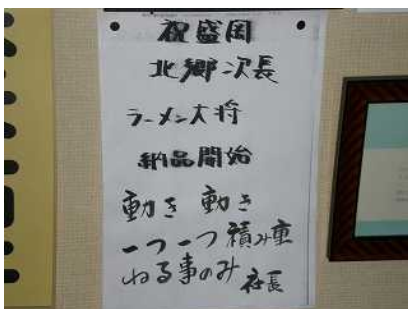 祝盛岡
北郷次長
ラーメン大将
納品開始
動き 動き
一つ一つ積み重
ねる事のみ 社長